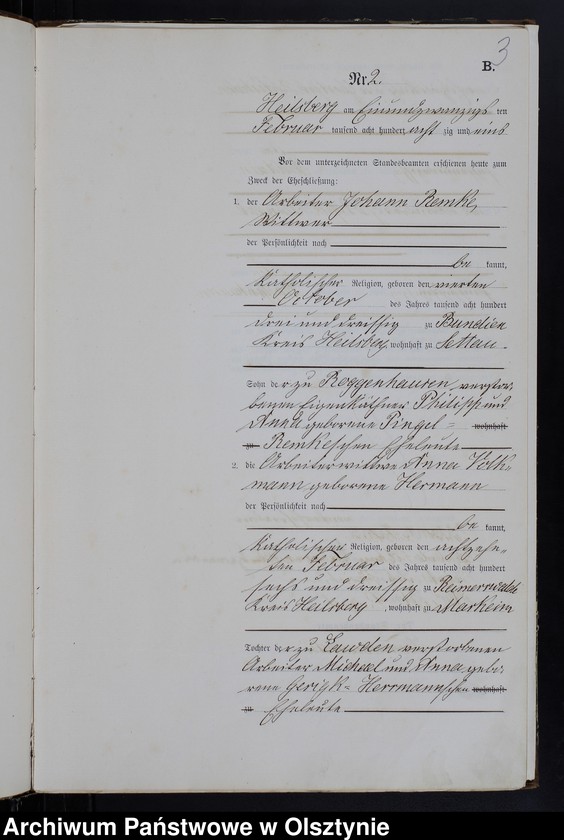 3
B.
Nr. 2.
Heilsberg am Einundzwanzigsten
Februar tausend acht hundert achtzig und eins
Vor dem unterzeichneten Standesbeamten erschienen heute zum
Zweck der Eheschließung:
1. der Arbeiter Johann Remke,
Wittwer
der Persönlichkeit nach
be kannt,
katholischer Religion, geboren den vierten
October des Jahres tausend acht hundert
drei und dreissig zu Bundien
Kreis Heilsberg, wohnhaft zu Settau.
Sohn der zu Roggenhausen verstor-
benen Eigenkäthner Philipp und
Anna geborene Pingel- wohnhaft
zu Remkeschen Eheleute
2. die Arbeiterwittwe Anna Volk-
mann geborene Hermann
der Persönlichkeit nach
be kannt,
katholischer Religion, geboren den achtzehn-
ten Februar des Jahres tausend acht hundert
sechs und dreissig zu Reimerswalde
Kreis Heilsberg, wohnhaft zu Markeim
Tochter der zu Lawden verstorbenen
Arbeiter Michael und Anna gebo-
rene Herrmannschen wohnhaft
zu Eheleute
Archiwum Państwowe w Olsztynie